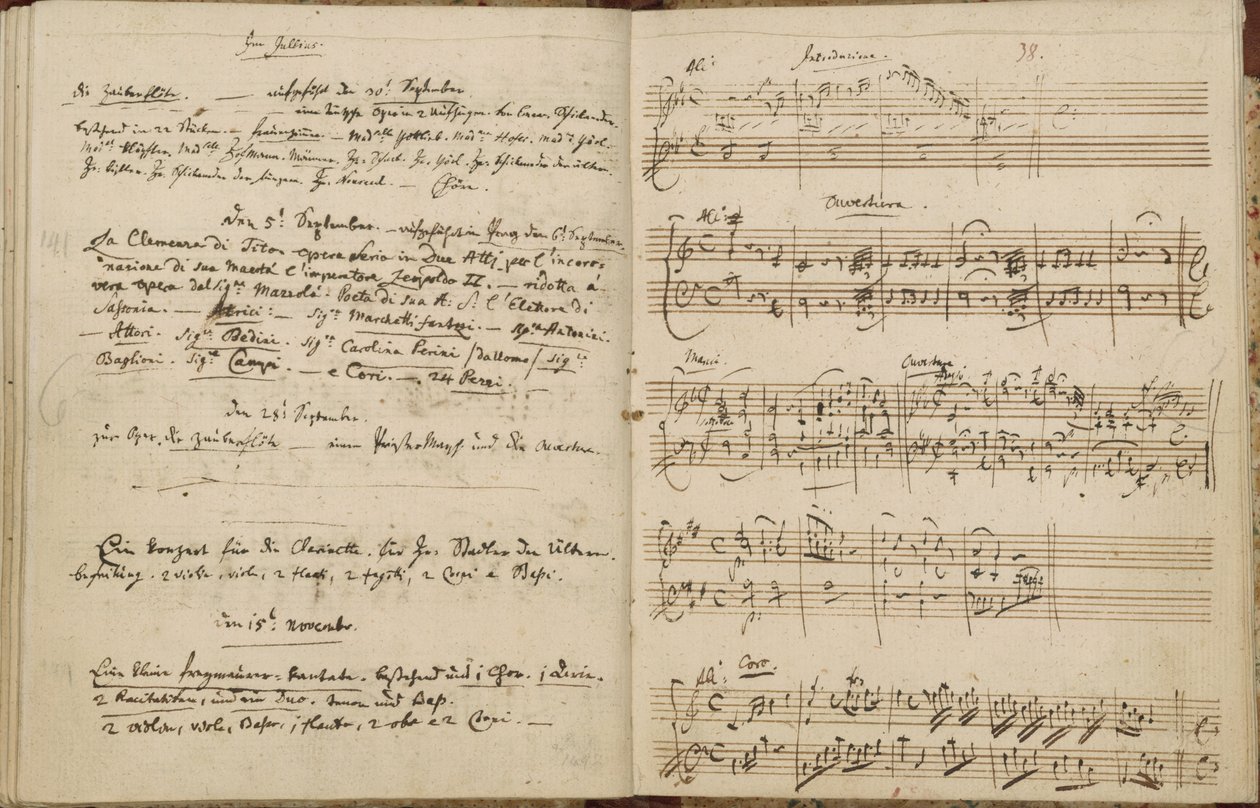 Im Jullius.
die Zauberflöte. — aufgeführt den 30t September.
eine teutsche Oper in 2 Aufzügen. von Eman. Schikaneder.
bestehend in 22 Stücken. — frauenzimmer. — Madselle Gottlieb. Madme Hofer. Mad: Görl.
Mad: Klöpfler. Madselle Hofmann. Männer. Hr: Schack. Hr. Görl. Hr: Schikaneder der ältere.
Hr: kistler. Hr: Schikaneder der Jüngere. Hr. Nouseul. — Chöre.
den 5t September. — aufgeführt in Prag den 6t September.
La Clemenza di Tito. opera Seria in Due Atti. per l'incoro-
nazione di sua Maestà l'imperatore Leopoldo II. — ridotta à
vera opera dal Sigre Mazzolà. Poeta di sua A: S: l'Elettore di
Sassonia. — Atrici: — Sigra Marchetti fantozi. — Sigra Antonini.
— Attori. Sigre Bedini. Sigra Carolina Perini / Da uomo / Sigre
Baglioni. Sigre Campi. — e Cori. — 24 Pezzi. —
den 28t September.
zur Oper. die Zauberflöte — einen Priestermarsch und die Ouverture.
Ein konzert für die Clarinette. für Hr: Stadler den ältern.
begleitung. 2 violini, viole, 2 flauti, 2 fagotti, 2 Corni e Bassi.
den 15t Novembr.
Eine kleine freymaurer-kantate. bestehend aus 1 Chor. 1 Arie.
2 Recitativen, und ein Duo. tenor und Bass.
2 violini, viola, Basso, 1 flauto, 2 oboe e 2 Corni. —
38.
Allo Introduzione.
Ouvertura.
Allo
Marcia. Ouverture
Adagio.
sotto voce
Allo Coro.